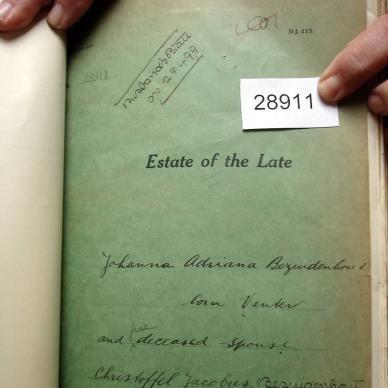 D.J. 115.
Husband's Estate
no 28499
28911
28911
Estate of the Late
Johanna Adriana Bezuidenhout
born Venter
and predeceased spouse
Christoffel Jacobus Bezuidenhout